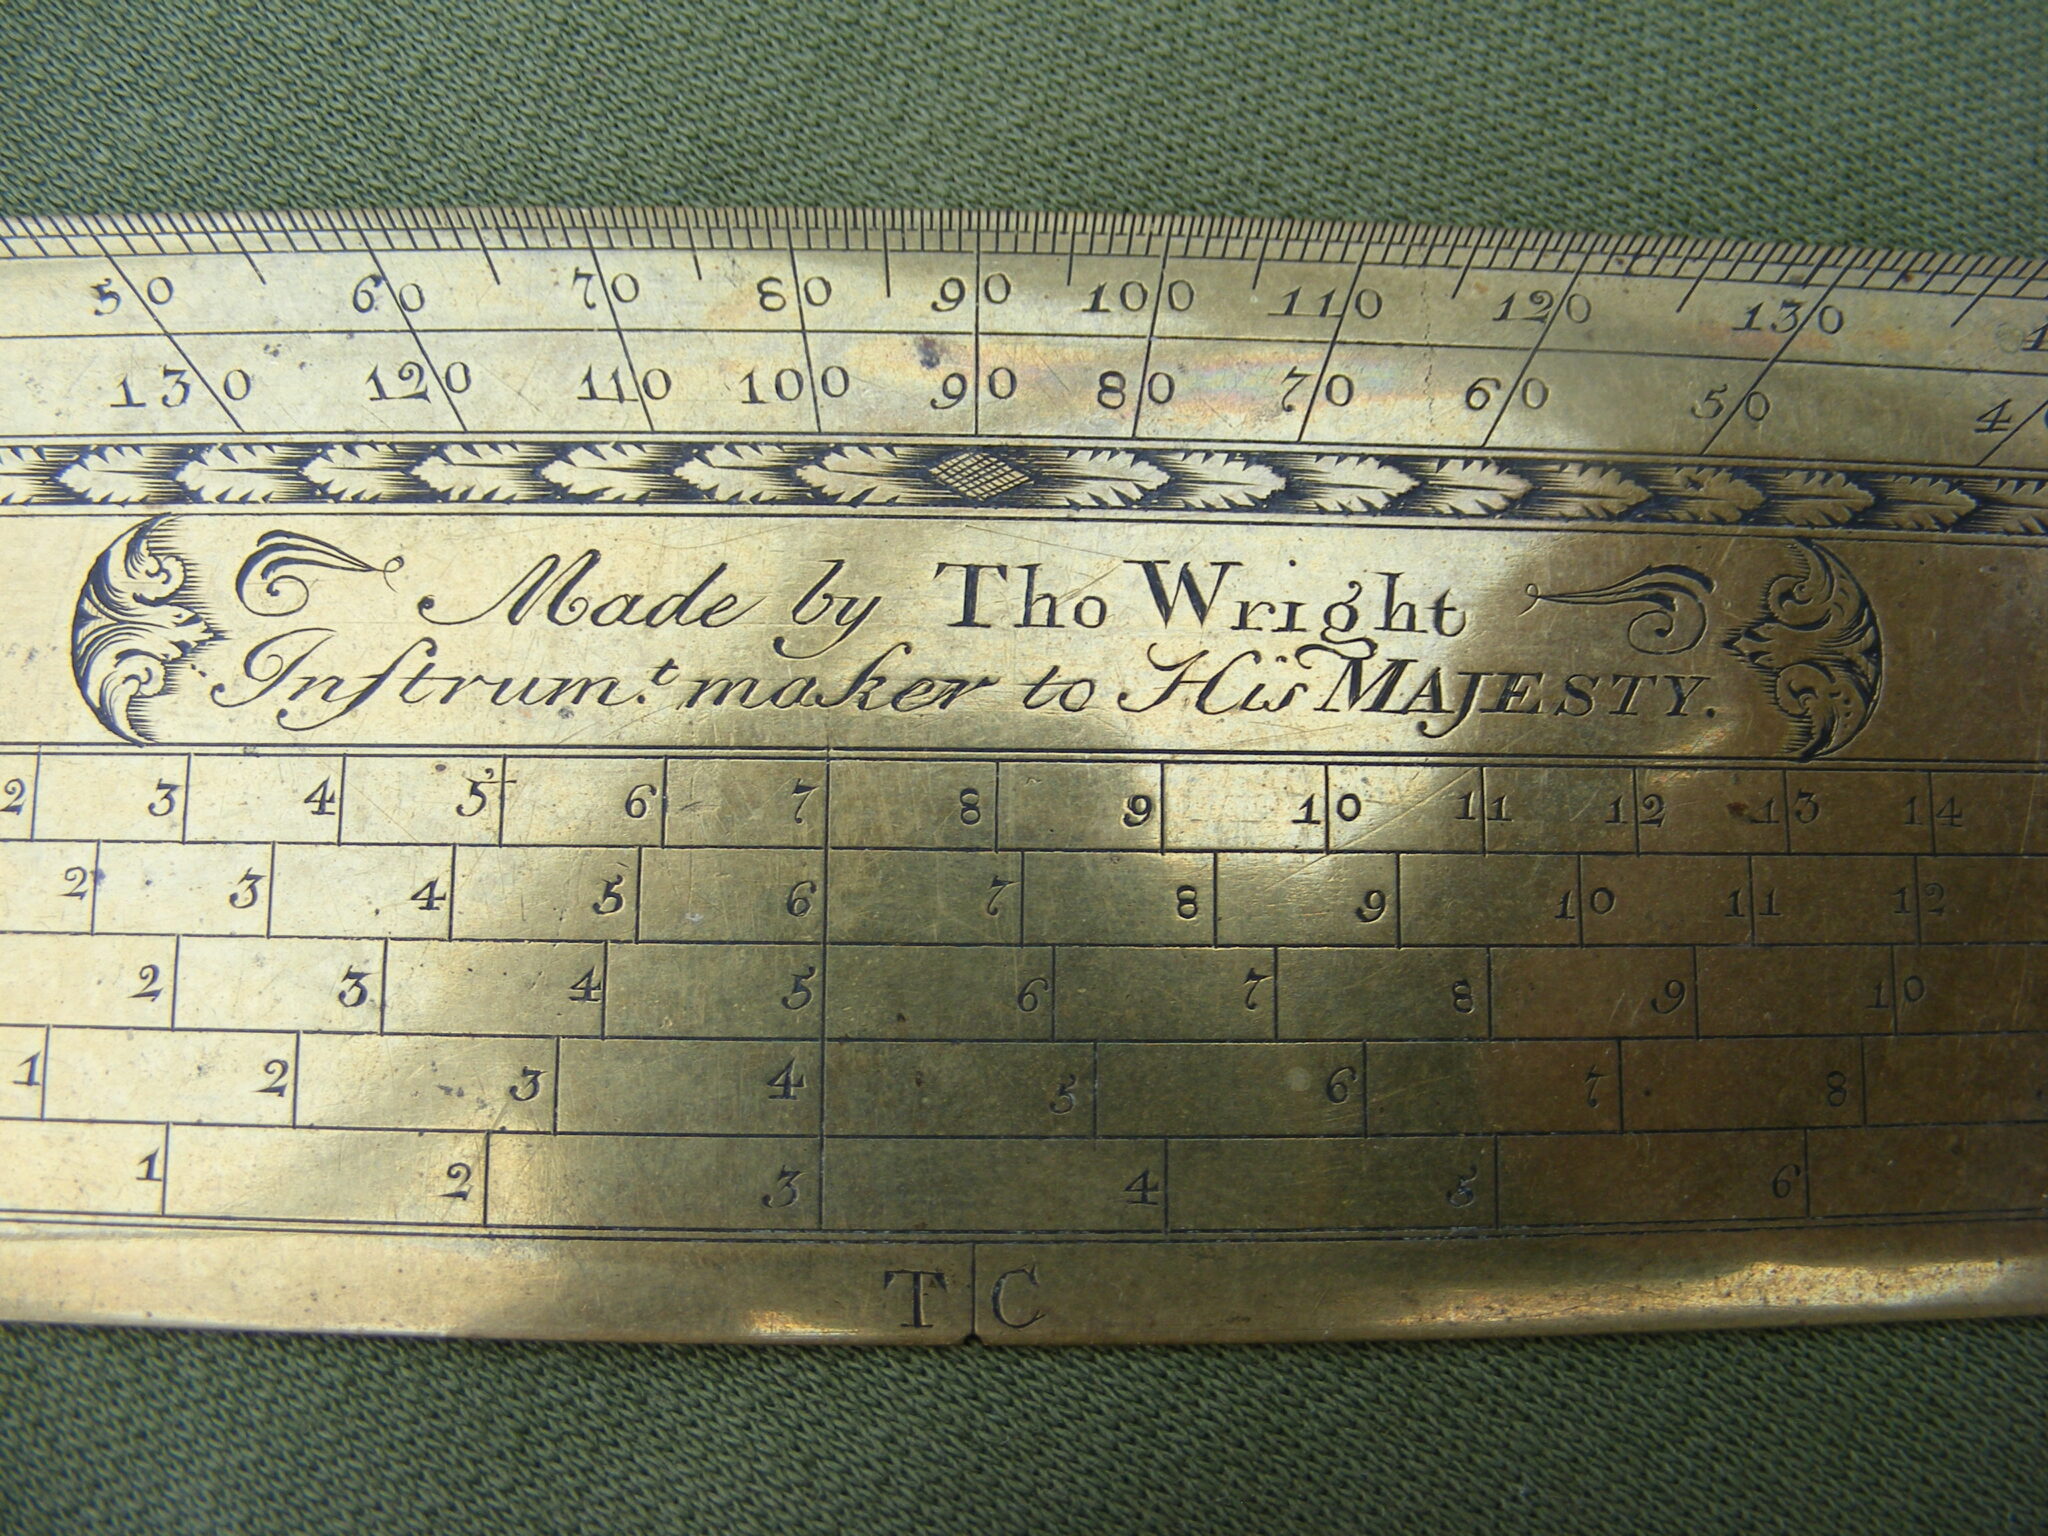 50 60 70 80 90 100 110 120 130
130 120 110 100 90 80 70 60 50 4
Made by Tho Wright
Inſtrum.t maker to His MAJESTY.
2 3 4 5 6 7 8 9 10 11 12 13 14
2 3 4 5 6 7 8 9 10 11 12
2 3 4 5 6 7 8 9 10
1 2 3 4 5 6 7 8
1 2 3 4 5 6
T C